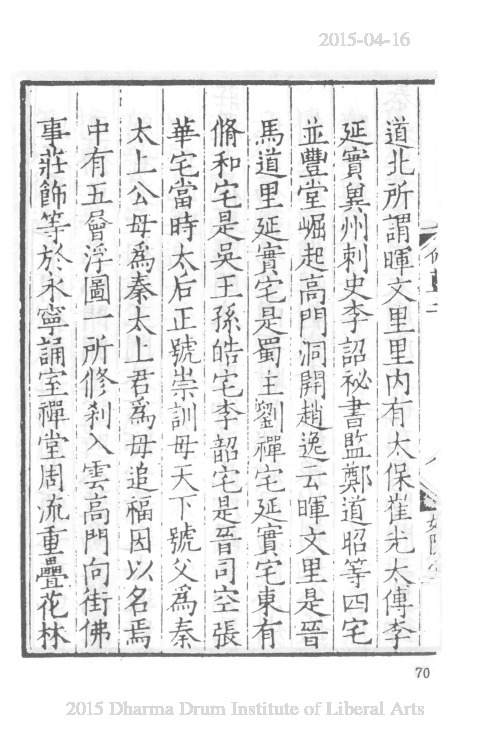 2015-04-16
道北所謂暉文里里内有太保崔光太傅李
延實兾州刺史李詔祕書監鄭道昭等四宅
並豐堂崛起高門洞開趙逸云暉文里是晉
馬道里延實宅是蜀主劉禪宅延實宅東有
脩和宅是吳王孫皓宅李韶宅是晉司空張
華宅當時太后正號崇訓母天下號父爲秦
太上公母爲秦太上君爲母追福因以名焉
中有五層浮圖一所修刹入雲高門向街佛
事莊飾等於永寧誦室禪堂周流重疊花林
70
2015 Dharma Drum Institute of Liberal Arts